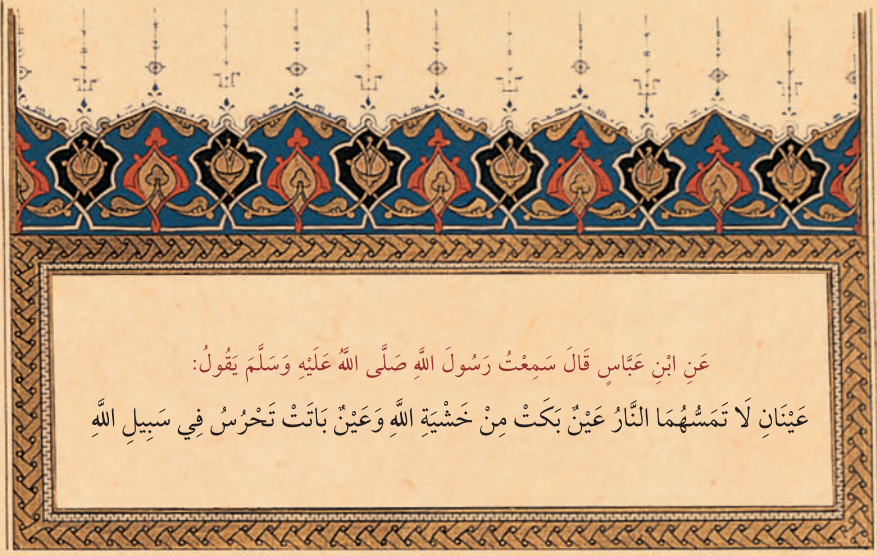 عَنِ ابْنِ عَبَّاسٍ قَالَ سَمِعْتُ رَسُولَ اللَّهِ صَلَّى اللَّهُ عَلَيْهِ وَسَلَّمَ يَقُولُ:
عَيْنَانِ لَا تَمَسُّهُمَا النَّارُ عَيْنٌ بَكَتْ مِنْ خَشْيَةِ اللَّهِ وَعَيْنٌ بَاتَتْ تَحْرُسُ فِي سَبِيلِ اللَّهِ